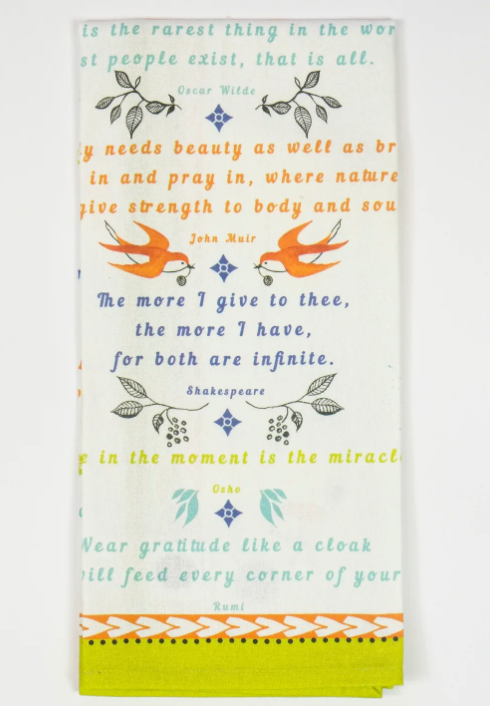 is the rarest thing in the wor
st people exist, that is all.
Oscar Wilde
y needs beauty as well as br
in and pray in, where nature
give strength to body and sou
John Muir
The more I give to thee,
the more I have,
for both are infinite.
Shakespeare
e in the moment is the miracl
Osho
Wear gratitude like a cloak
will feed every corner of your
Rumi